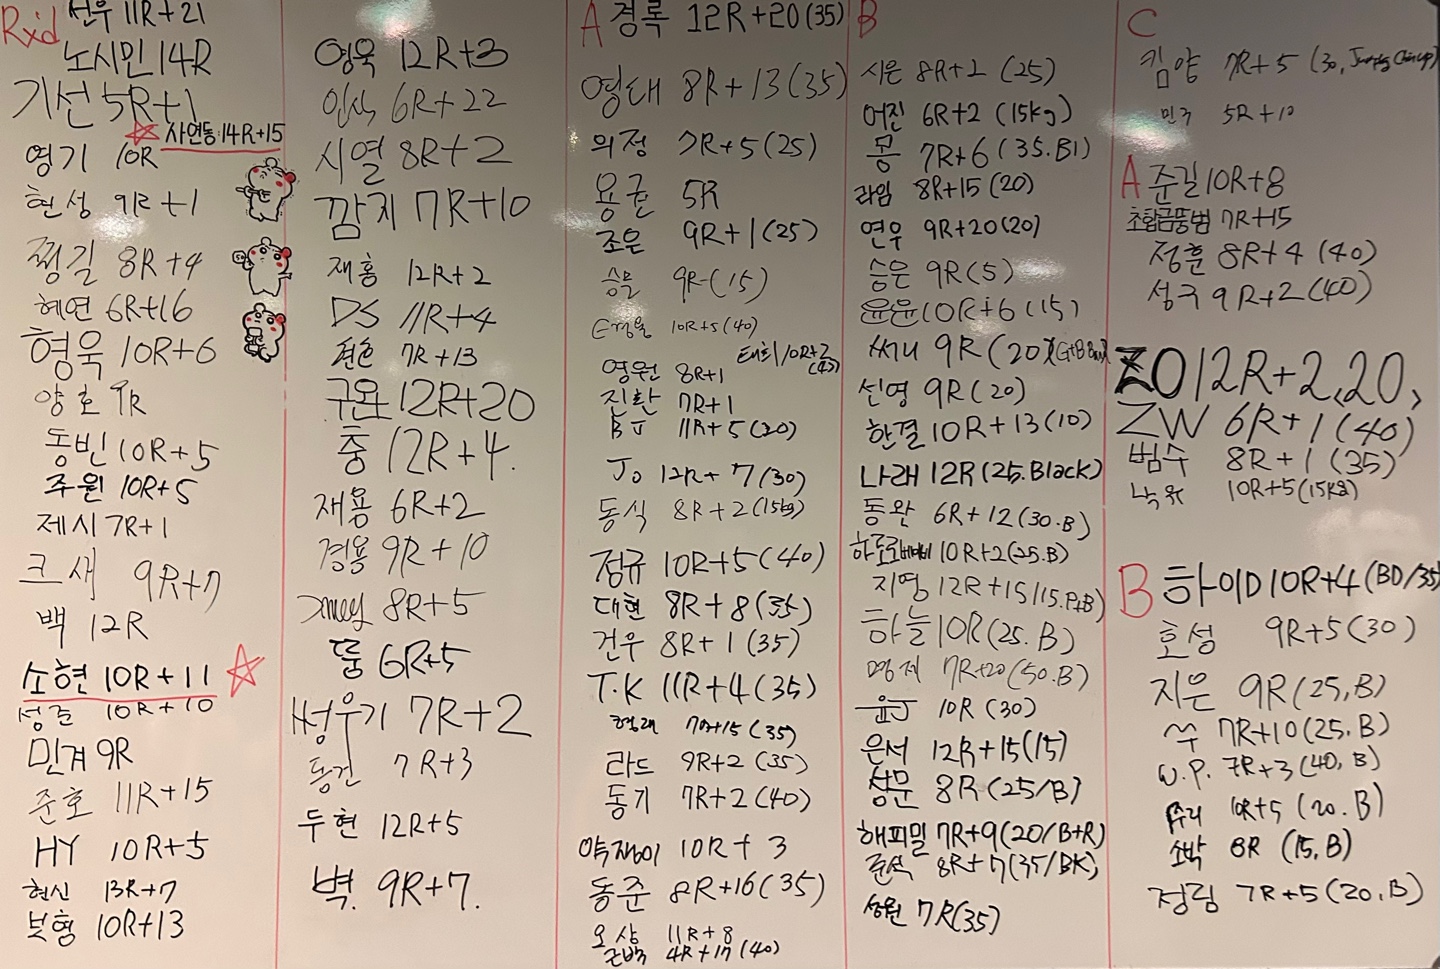 Rxd
선우 11R+21
노시민 14R
기선 5R+1
사연동:14R+15
영기 10R
현성 9R+1
찡길 8R+4
혜연 6R+16
형욱 10R+6
양호 9R
동빈 10R+5
주원 10R+5
제시 7R+1
크새 9R+7
백 12R
소현 10R+11
성준 10R+10
민겸 9R
준호 11R+15
HY 10R+5
현신 13R+7
보형 10R+13
영욱 12R+3
인식 6R+22
시열 8R+2
깜지 7R+10
재홍 12R+2
DS 11R+4
7R+13
구완 12R+20
충 12R+4.
재용 6R+2
경용 9R+10
8R+5
뚱 6R+5
써우기 7R+2
동건 7R+3
두현 12R+5
벽. 9R+7.
A 경록 12R+20(35)
영태 8R+13(35)
의정 7R+5(25)
용균 5R
조은 9R+1(25)
승무 9R-(15)
10R+5(40)
태희 10R+2
영원 8R+1
진환 7R+1
BJ 11R+5(20)
Jo 12R+7(30)
동식 8R+2(15kg)
정규 10R+5(40)
대현 8R+8(35)
건우 8R+1(35)
T.K 11R+4(35)
형래 7R+15(35)
라드 9R+2(35)
동기 7R+2(40)
약쟁이 10R+3
동준 8R+16(35)
오상 11R+8
근백 4R+17(40)
B
시은 8R+2(25)
어진 6R+2(15kg)
몽 7R+6(35.B1)
라임 8R+15(20)
연우 9R+20(20)
승은 9R(5)
윤윤 10R+6(15)
써니 9R(20)
선영 9R(20)
한결 10R+13(10)
나래 12R(25.Black)
동완 6R+12(30.B)
10R+2(25.B)
지영 12R+15(15.P+B)
하늘 10R(25.B)
명제 7R+20(50.B)
윤J 10R(30)
은서 12R+15(15)
성문 8R(25/B)
해피밀 7R+9(20/B+R)
준석 8R+7(35/BK)
성원 7R(35)
C
킴양 7R+5(30,Jumping Chin up)
민구 5R+10
A
준길 10R+8
초합금뚱범 7R+15
정훈 8R+4(40)
성구 9R+2(40)
ZO 12R+2,20,
ZW 6R+1(40)
범수 8R+1(35)
낙유 10R+5(15kg)
B
하이D 10R+4(BD/35)
호성 9R+5(30)
지은 9R(25,B)
쑤 7R+10(25.B)
W.P. 7R+3(40,B)
쥬리 10R+5(20.B)
소박 8R(15,B)
정림 7R+5(20.B)